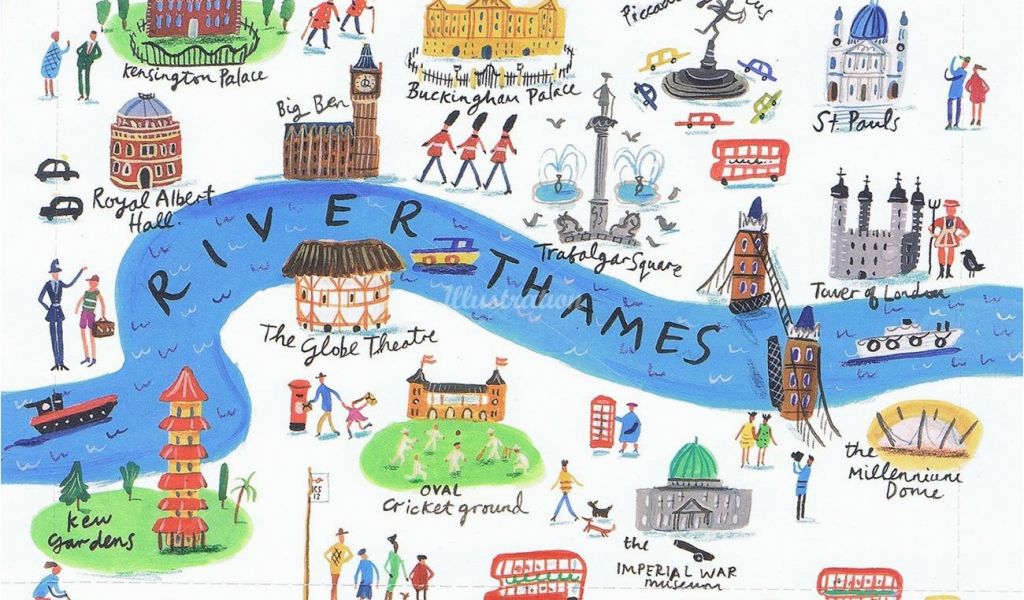 Kensington Palace
Big Ben
Buckingham Palace
St Pauls
Royal Albert
Hall
RIVER THAMES
Trafalgar Square
Tower of London
The Globe Theatre
OVAL
Cricket ground
the
Millennium
Dome
Kew
Gardens
the
IMPERIAL WAR
museum